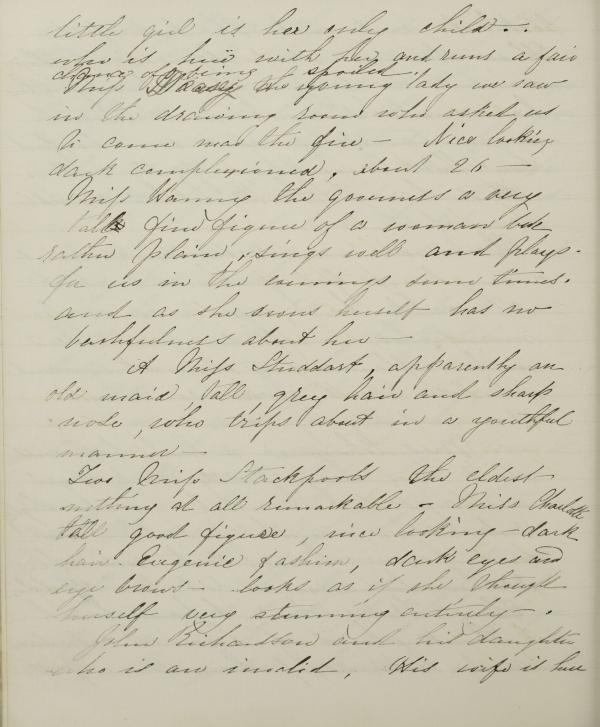 little girl is her only child -.
who is here with her and runs a fair
chance of being spoiled.
Miss the young lady we saw
in the drawing room who asked us
to come near the fire - Nice looking
dark complexioned, about 26 -
Miss the governess a very
tall fine figure of a woman but
rather plain, sings well and plays
for us in the evenings some times.
and as she says herself has no
bashfulness about her -
A Miss Studdart, apparently an
old maid, tall, grey hair and sharp
nose, who trips about in a youthful
manner -
Two Miss Stackpools the eldest
nothing at all remarkable - Miss Charlotte
tall good figure, nice looking - dark
hair. Eugenie fashion, dark eyes and
eye brows - looks as if she thought
herself very stunning entirely -.
John Richardson and his daughter
who is an invalid, His wife is here